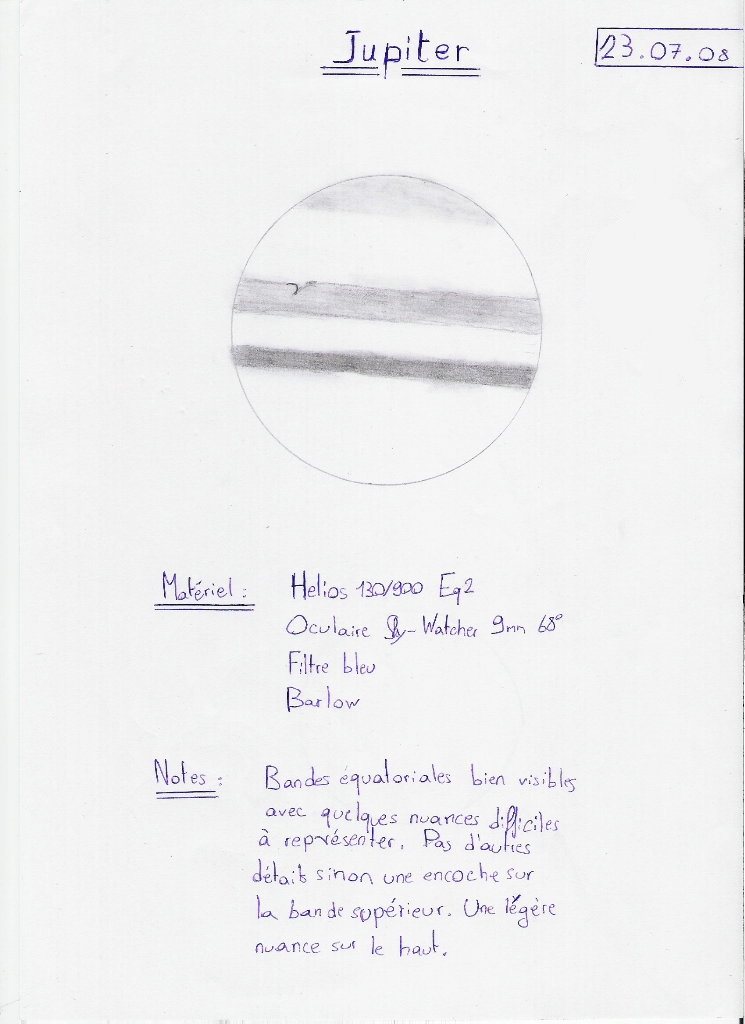 Jupiter
23.07.08
Matériel : Helios 130/900 Eq2
Oculaire Sky-Watcher 9mm 68°
Filtre bleu
Barlow
Notes : Bandes équatoriales bien visibles
avec quelques nuances difficiles
à représenter. Pas d'autres
détails sinon une encoche sur
la bande supérieur. Une légère
nuance sur le haut.